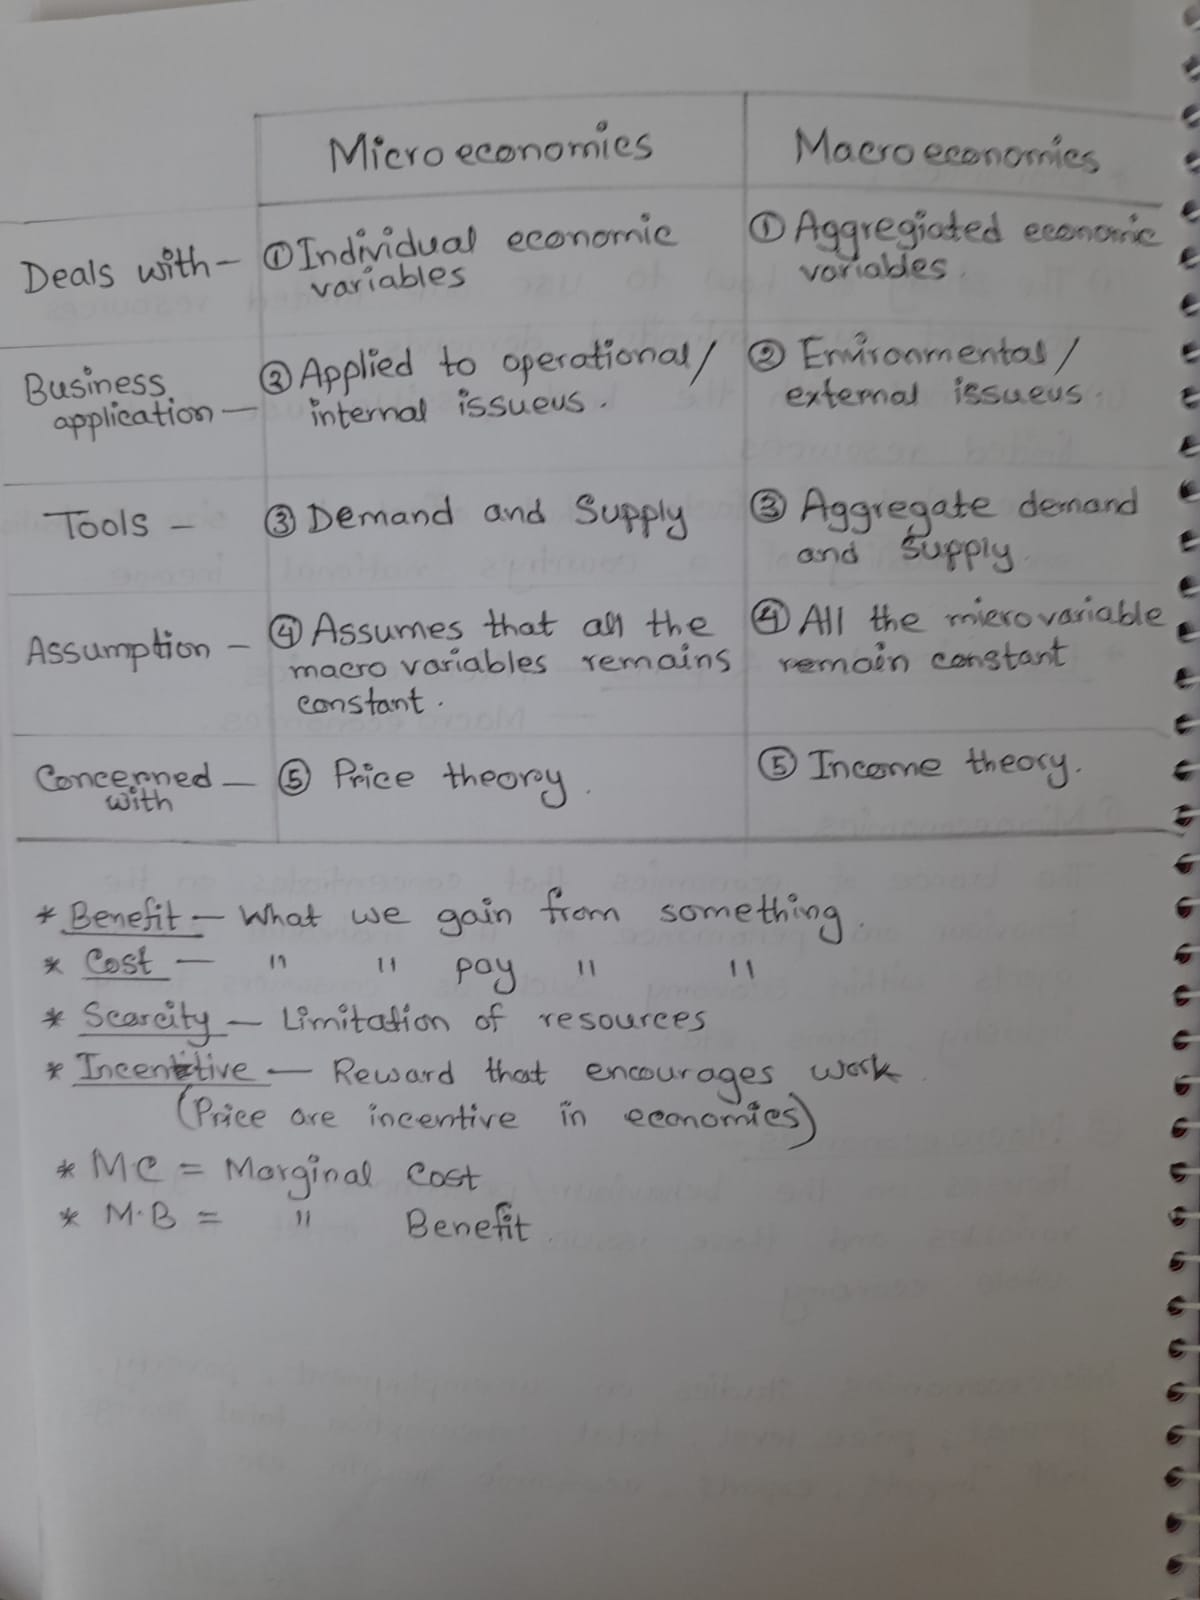 Microeconomics Macroeconomics
Deals with – ① Individual economic variables ① Aggregiated economic variables.
Business application — ② Applied to operational/ internal issueus. ② Environmental/ external issueus.
Tools – ③ Demand and Supply ③ Aggregate demand and supply.
Assumption – ④ Assumes that all the macro variables remains constant. ④ All the micro variable remain constant
Concerned with — ⑤ Price theory. ⑤ Income theory.
* Benefit – What we gain from something.
* Cost – " " pay " "
* Scarcity – Limitation of resources
* Incentitive — Reward that encourages work.
(Price are incentive in economics)
* MC = Marginal Cost
* M.B = " Benefit.